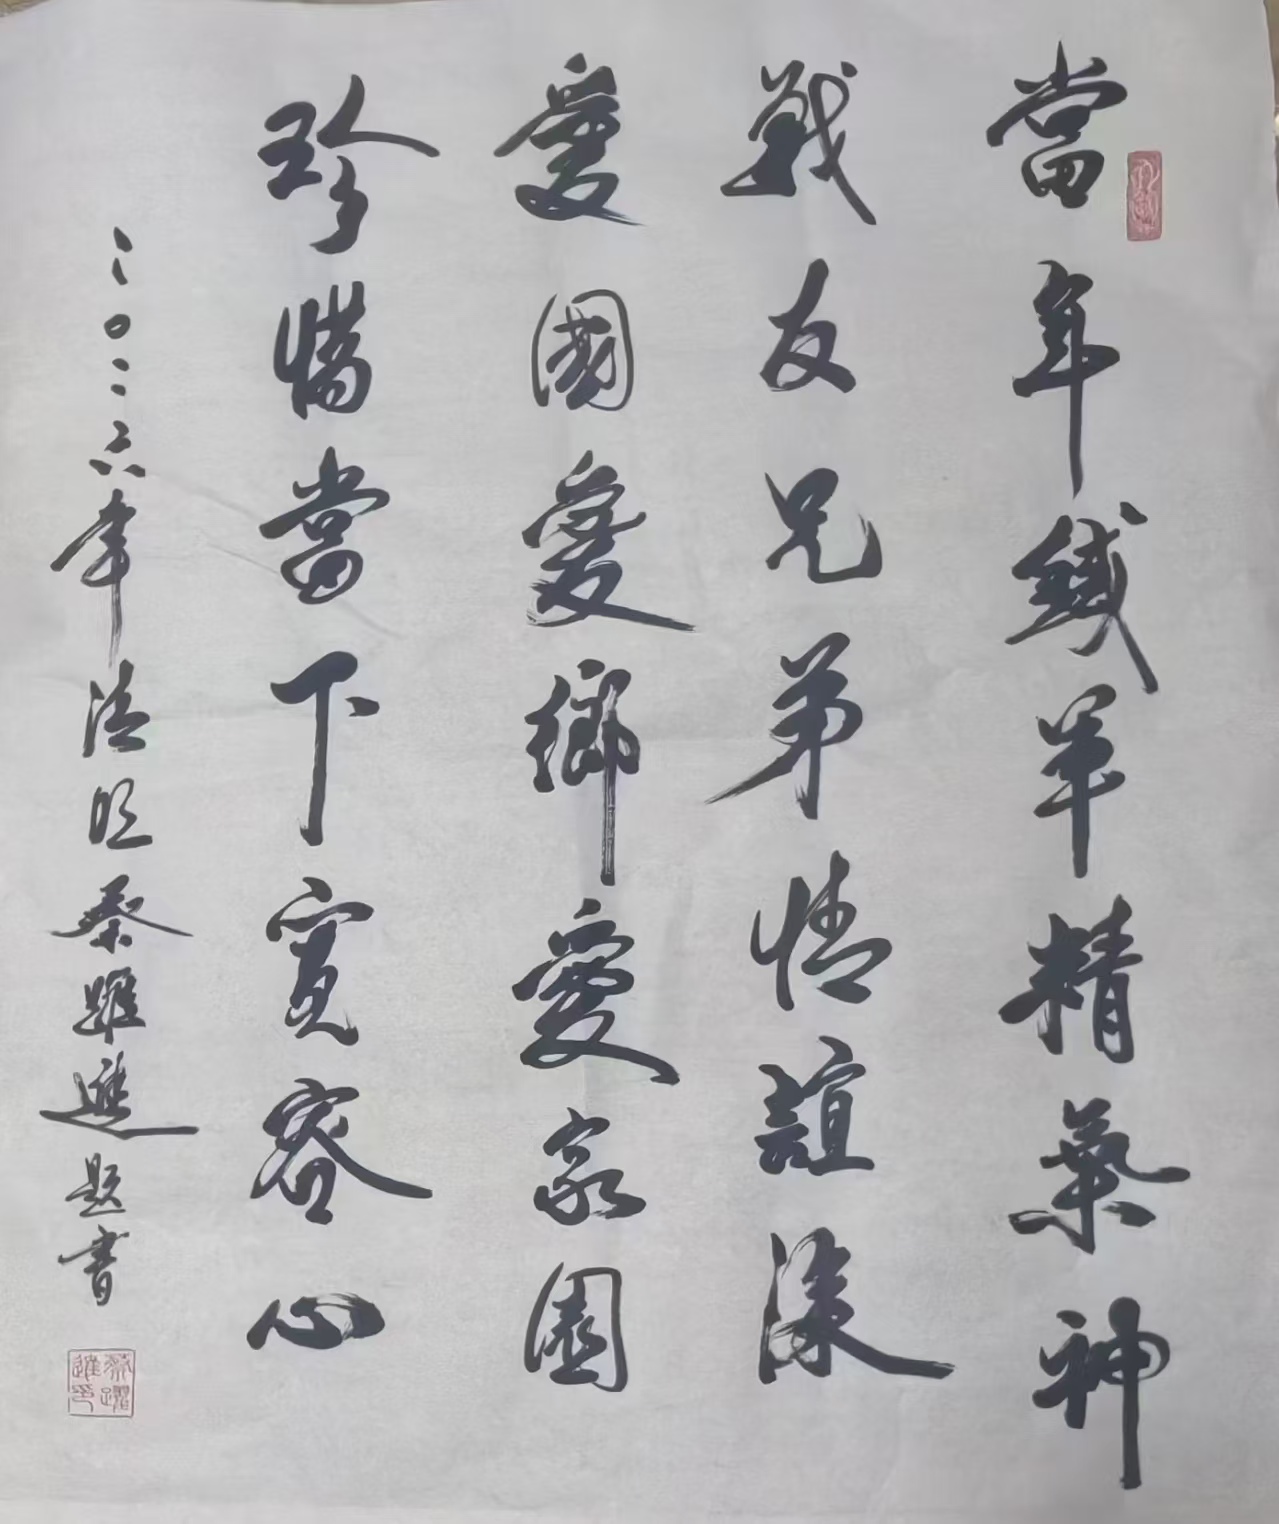 當年鐵軍精氣神
戰友兄弟情誼深
愛國愛鄉愛家園
珍惜當下寬容心
二〇二六年清明蔡躍進題書
蔡躍進印